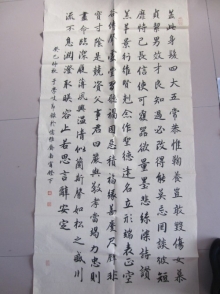 蓋此身髮四大五常恭惟鞠養豈敢毀傷女慕
貞絜男效才良知過必改得能莫忘罔談彼短
靡恃己長信使可覆器欲難量墨悲絲染詩讚
羔羊景行維賢剋念作聖德建名立形端表正
空谷傳聲虛堂習聽禍因惡積福緣善慶尺璧非
寶寸陰是競資父事君曰嚴與敬孝當竭力忠則
盡命臨深履薄夙興溫凊似蘭斯馨如松之盛川
流不息淵澄取映容止若思言辭安定
癸巳仲秋